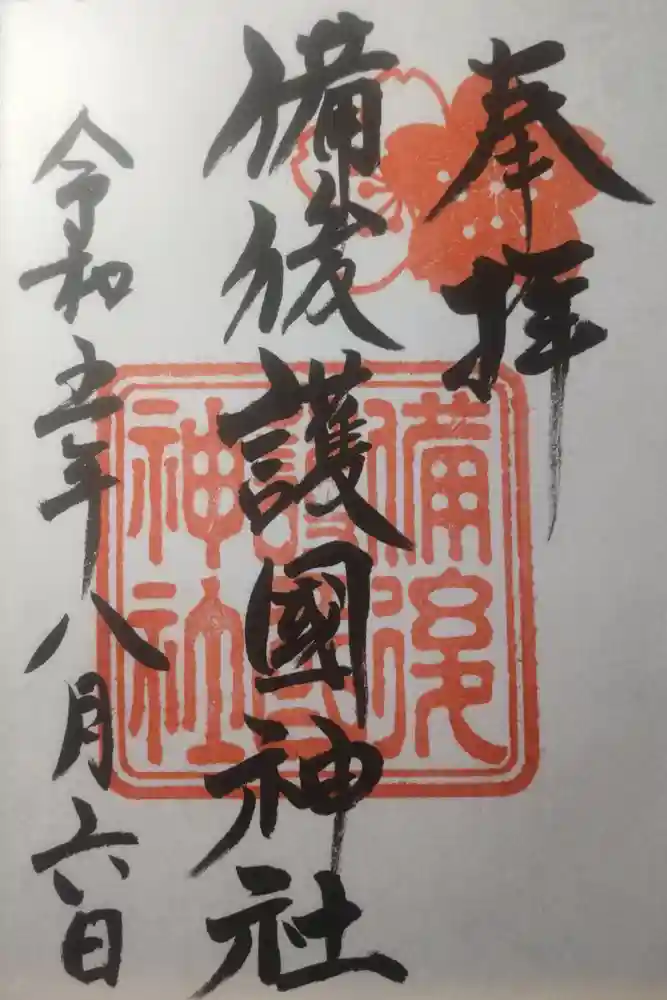 奉拝
備後護國神社
令和五年八月六日
備後
護國
神社